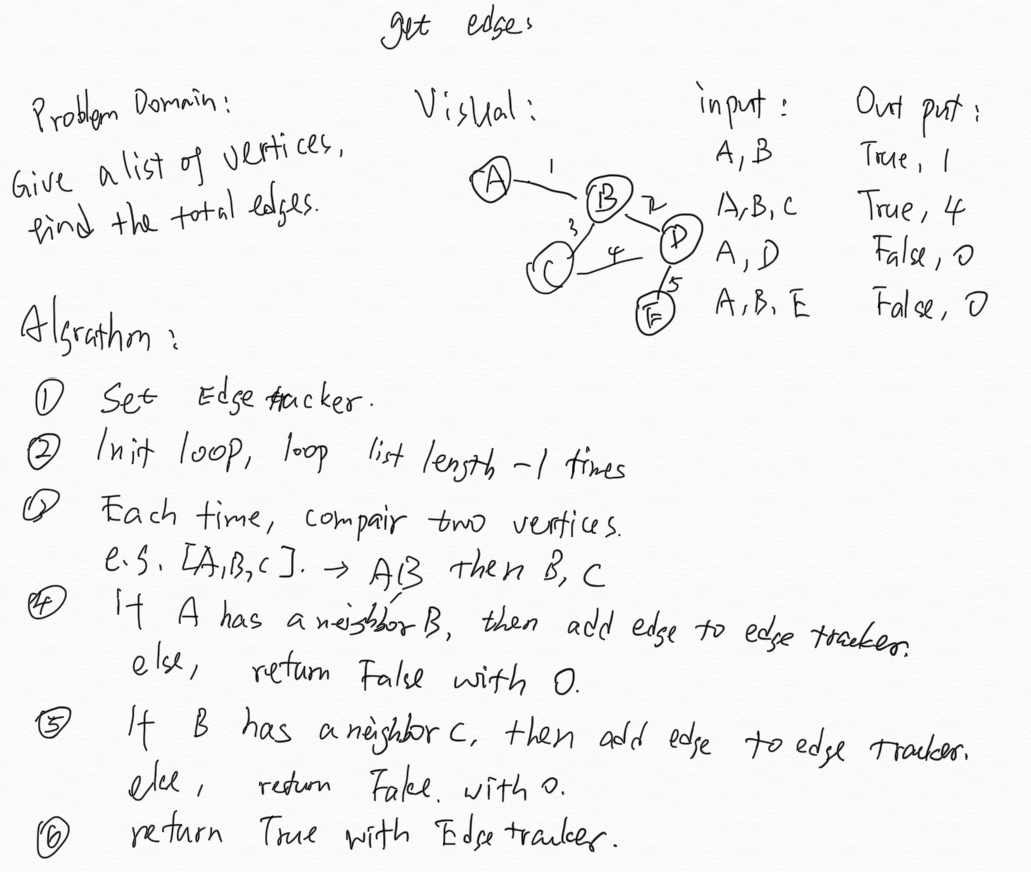 get edges
Problem Domain:
Give a list of vertices,
find the total edges.
Visual:
A
1
B
2
3
D
C
4
5
E
input : Out put :
A, B True, 1
A,B,C True, 4
A, D False, 0
A,B,E False, 0
Algrathm :
① Set Edge tracker.
② Init loop, loop list length -1 times
③ Each time, compair two vertices.
e.g. [A,B,C]. → AB then B, C
④ If A has a neighbor B, then add edge to edge tracker.
else, return False with 0.
⑤ If B has a neighbor C, then add edge to edge tracker.
else, return False. with 0.
⑥ return True with Edge tracker.